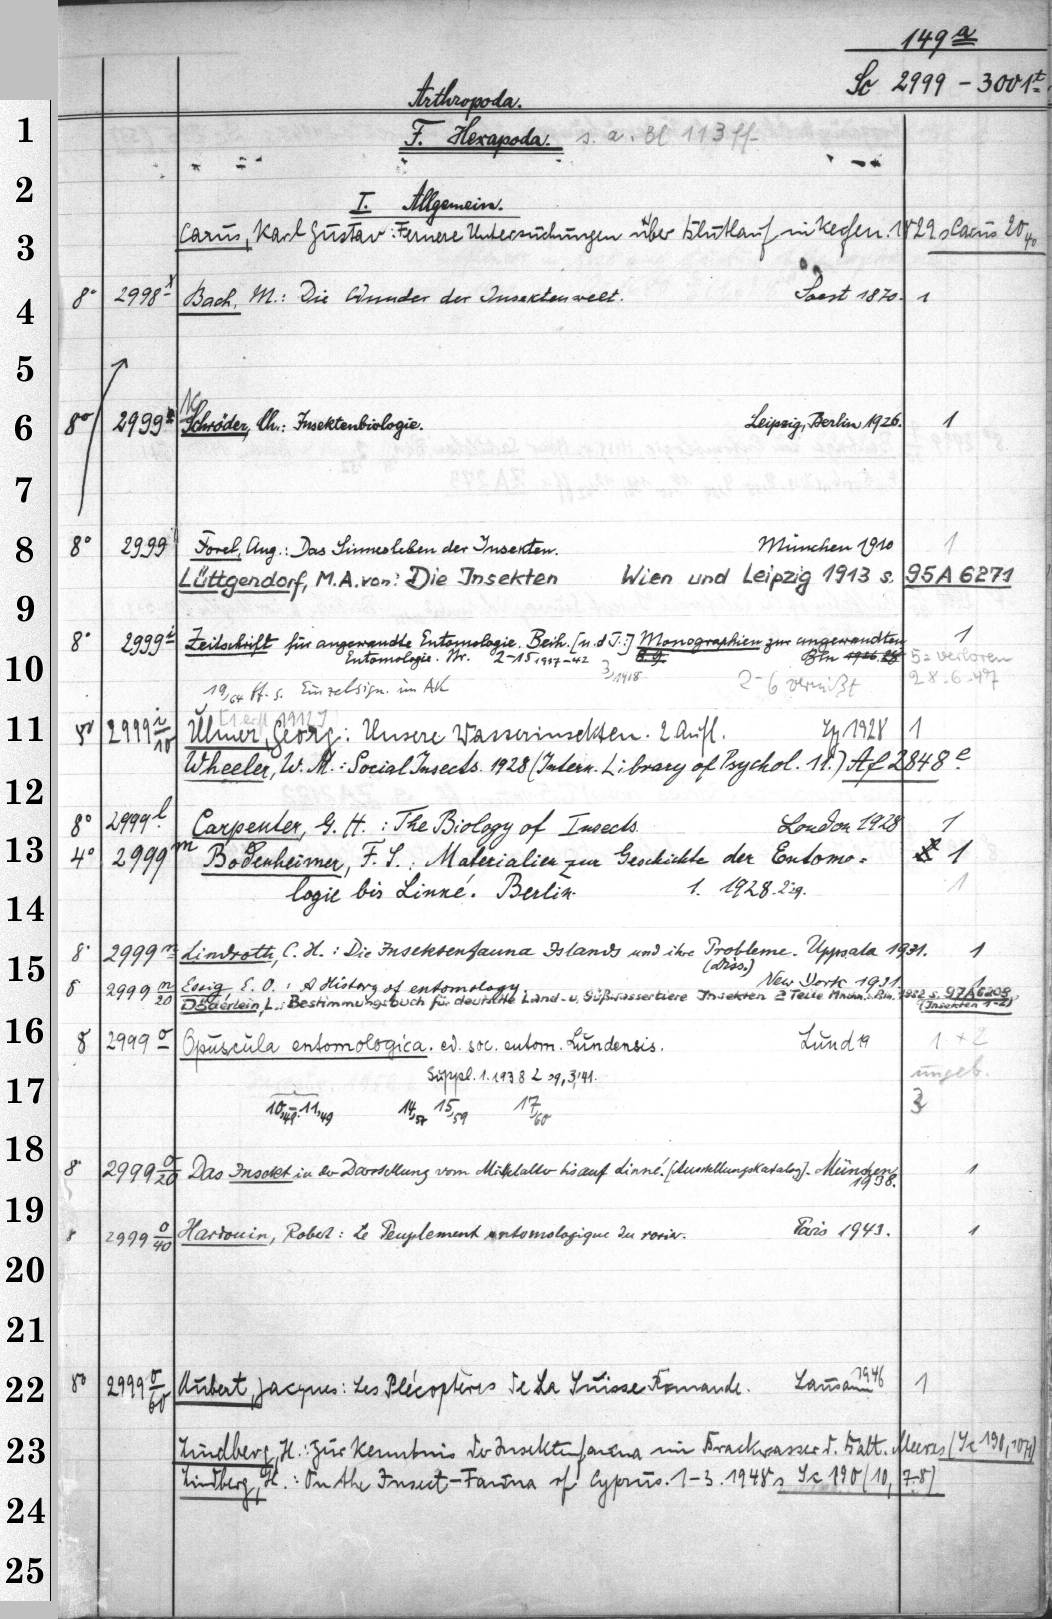 149 a
Sc 2999 - 3001 t
Arthropoda.
1
F. Hexapoda. s. a. Bl 113 ff.
2
I. Allgemein.
3
Carus, Karl Gustav: Fernere Untersuchungen über Blutlauf in Kerfen. 1829 s Carus 20 40
4
8° 2998 Bach, M.: Die Wunder der Insektenwelt. Soest 1870. 1
5
6
8° 2999 Schröder, Ch.: Insektenbiologie. Leipzig, Berlin 1926. 1
7
8
8° 2999 Forel, Aug.: Das Sinnesleben der Insekten. München 1910 1
Lüttgendorf, M.A. von: Die Insekten Wien und Leipzig 1913 s. 95A6271
9
8° 2999 i Zeitschrift für angewandte Entomologie. Beih. [u. d T.:] Monographien zur angewandten 1
10
Entomologie. Nr. 2-15 1917-42 Bln 5 = verloren
3, 1918 2-6 vermißt 28.6.47
19,64 ff. s. Einzelsign. im AK
11
8° 2999 i/10 Ulmer, Georg: Unsere Wasserinsekten. 2. Aufl. Lg 1928 1
Wheeler, W. M.: Social Insects. 1928 (Intern. Library of Psychol. 11.) Af 2848 e
12
8° 2999 l Carpenter, G. H.: The Biology of Insects London 1928 1
13
4° 2999 m Bodenheimer, F. S.: Materialien zur Geschichte der Entomo= 1
14
logie bis Linné. Berlin. 1. 1928. 2 1
15
8° 2999 n Lindroth, C. H.: Die Insektenfauna Islands und ihre Probleme. Uppsala 1931. 1
(Diss.)
8 2999 n/20 Essig, E. O.: A History of entomology. New York 1931 1
Döderlein, L.: Bestimmungsbuch für deutsche Land- u. Süßwassertiere Insekten 2 Teile Mnchn. 1952 s. 97A6209
(Insekten 1-2)
16
8 2999 o Opuscula entomologica. ed. soc. entom. Lundensis. Lund 19 1 + 2
Suppl. 1.1938 2 39, 3,41. ungeb.
17
10,49-11,49 14,57 15,59 17,60 3
18
8° 2999 o/20 Das Insekt in der Darstellung vom Mittelalter bis auf Linné. [Ausstellungskatalog]. München 1
1938.
19
8 2999 o/40 Hardouin, Robert: Le Peuplement entomologique du rosier. Paris 1943. 1
20
21
22
8° 2999 o/60 Aubert, Jacques: Les Plécoptères de la Suisse Romande. Lausanne 1946 1
23
Lindberg, H.: Zur Kenntnis der Insektenfauna im Brackwasser d. Balt. Meeres (Sc 190, 10,9)
Lindberg, H.: On the Insect-Fauna of Cyprus. 1-3. 1948 s Sc 190 (10, 7-8)
24
25